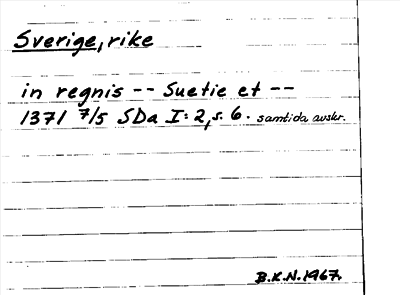 Sverige, rike
in regnis -- Suetie et --
1371 7/5 SDa I: 2, s. 6. samtida avskr.
B.K.N. 1967.